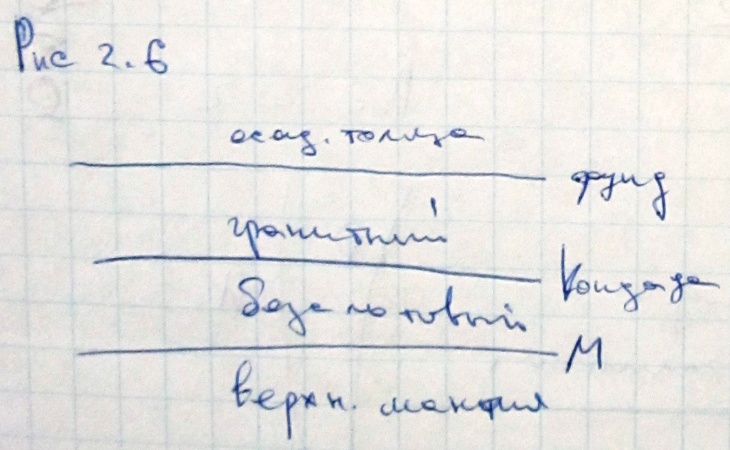 Рис 2.6
осад. толща
фунд
гранитный
Конрада
базальтовый
М
верхн. мантия